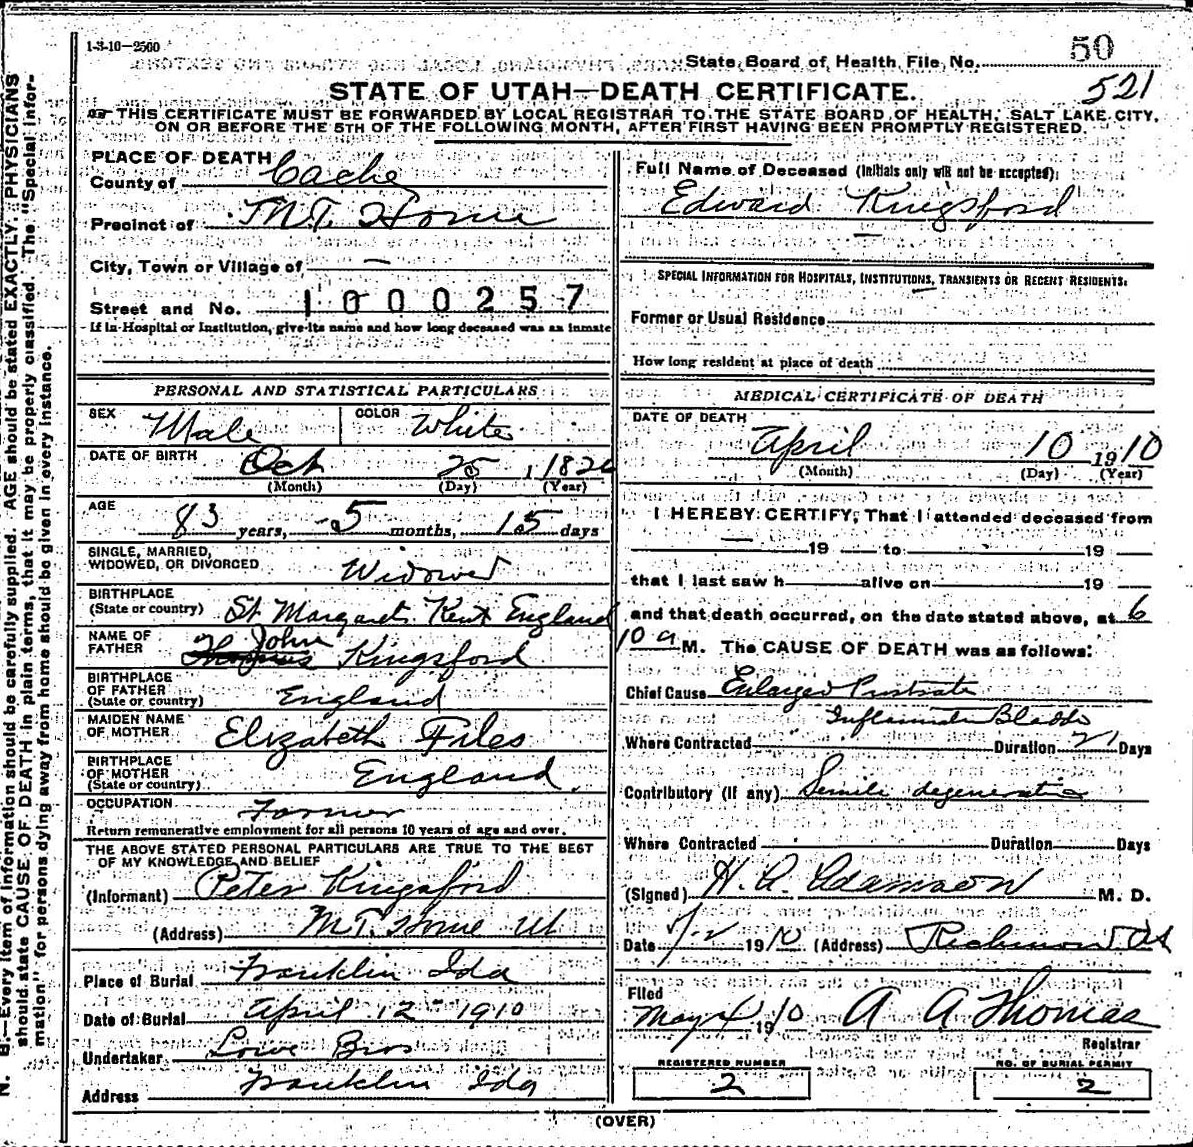 1-3-10-2500
State Board of Health File No. 50
521
STATE OF UTAH—DEATH CERTIFICATE.
THIS CERTIFICATE MUST BE FORWARDED BY LOCAL REGISTRAR TO THE STATE BOARD OF HEALTH, SALT LAKE CITY,
ON OR BEFORE THE 5TH OF THE FOLLOWING MONTH, AFTER FIRST HAVING BEEN PROMPTLY REGISTERED.
PLACE OF DEATH
County of Cache
Precinct of Mt. Home
City, Town or Village of —
Street and No. 1000257
If in Hospital or Institution, give its name and how long deceased was an inmate
PERSONAL AND STATISTICAL PARTICULARS
SEX Male COLOR White
DATE OF BIRTH Oct 25, 1826
(Month) (Day) (Year)
AGE 83 years, 5 months, 15 days
SINGLE, MARRIED,
WIDOWED, OR DIVORCED Widower
BIRTHPLACE
(State or country) St Margarets Kent England
NAME OF
FATHER John Kingsford
BIRTHPLACE
OF FATHER
(State or country) England
MAIDEN NAME
OF MOTHER Elizabeth Files
BIRTHPLACE
OF MOTHER
(State or country) England.
OCCUPATION Farmer
Return remunerative employment for all persons 10 years of age and over.
THE ABOVE STATED PERSONAL PARTICULARS ARE TRUE TO THE BEST
OF MY KNOWLEDGE AND BELIEF
(Informant) Peter Kingsford
(Address) Mt. Home Ut
Place of Burial Franklin Ida
Date of Burial April 12 1910
Undertaker Lowe Bros
Address Franklin Ida
Full Name of Deceased (Initials only will not be accepted):
Edward Kingsford
SPECIAL INFORMATION FOR HOSPITALS, INSTITUTIONS, TRANSIENTS OR RECENT RESIDENTS:
Former or Usual Residence
How long resident at place of death
MEDICAL CERTIFICATE OF DEATH
DATE OF DEATH
April 10 1910
(Month) (Day) (Year)
I HEREBY CERTIFY, That I attended deceased from
— 19 to 19
that I last saw h alive on 19
and that death occurred, on the date stated above, at 6
10 a M. The CAUSE OF DEATH was as follows:
Chief Cause Enlarged Prostrate
Bladder
Where Contracted Duration 21 Days
Contributory (if any) Senile degeneration
Where Contracted Duration Days
(Signed) H. A. Adamson M. D.
Date 1910 (Address) Richmond Ut
Filed
May 4 1910 A A Thomas
Registrar
REGISTERED NUMBER
2
NO. OF BURIAL PERMIT
2
(OVER)
N. B.—Every item of information should be carefully supplied. AGE should be stated EXACTLY. PHYSICIANS
should state CAUSE OF DEATH in plain terms, that it may be properly classified. The "Special Infor-
mation" for persons dying away from home should be given in every instance.